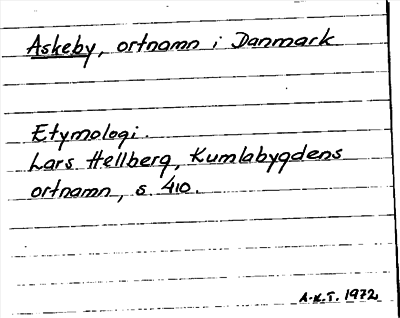 Askeby, ortnamn i Danmark
Etymologi.
Lars Hellberg, Kumlabygdens
ortnamn, s. 410.
A-K.T. 1972